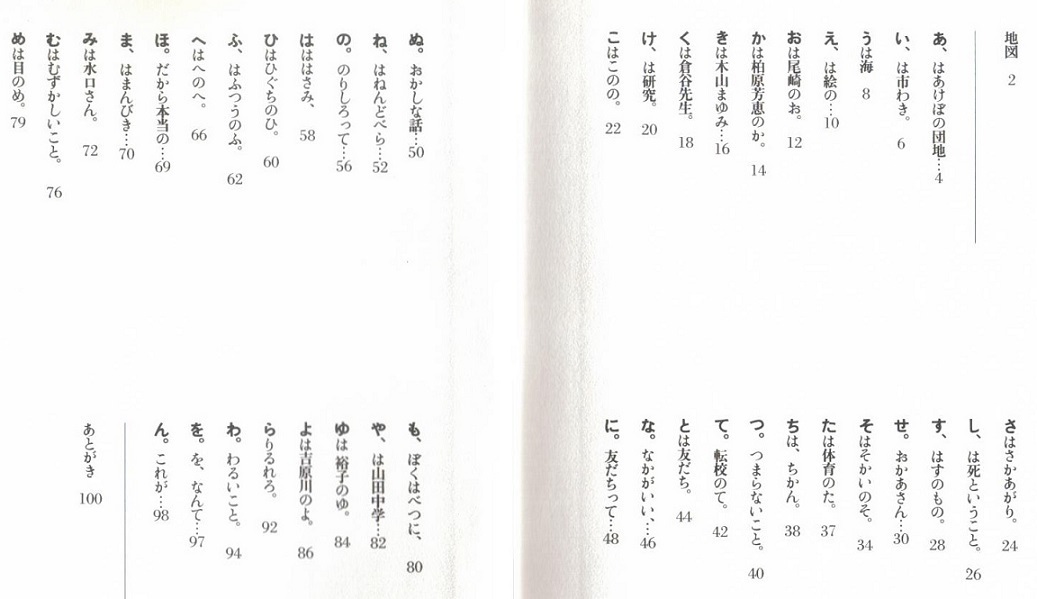 地図 2
あ、はあけぼの団地…4
い、は市わき。 6
うは海 8
え、は絵の…10
おは尾崎のお。 12
かは柏原芳恵のか。 14
きは木山まゆみ…16
くは倉谷先生。 18
け、は研究。 20
こはこのの。 22
さはさかあがり。 24
し、は死ということ。 26
す、はすのもの。 28
せ。おかあさん…30
そはそかいのそ。 34
たは体育のた。 37
ちは、ちかん。 38
つ。つまらないこと。 40
て。転校のて。 42
とは友だち。 44
な。なかがいい、…46
に。友だちって…48
ぬ。おかしな話…50
ね、はねんどべら…52
の。のりしろって…56
はははさみ、 58
ひはひぐちのひ。 60
ふ、はふつうのふ。 62
へはへのへ。 66
ほ。だから本当の…69
ま、はまんびき…70
みは水口さん。 72
むはむずかしいこと。 76
めは目のめ。 79
も、ぼくはべつに、 80
や、は山田中学…82
ゆは 裕子のゆ。 84
よは吉原川のよ。 86
らりるれろ。 92
わ。わるいこと。 94
を。を、なんて…97
ん。これが…98
あとがき 100